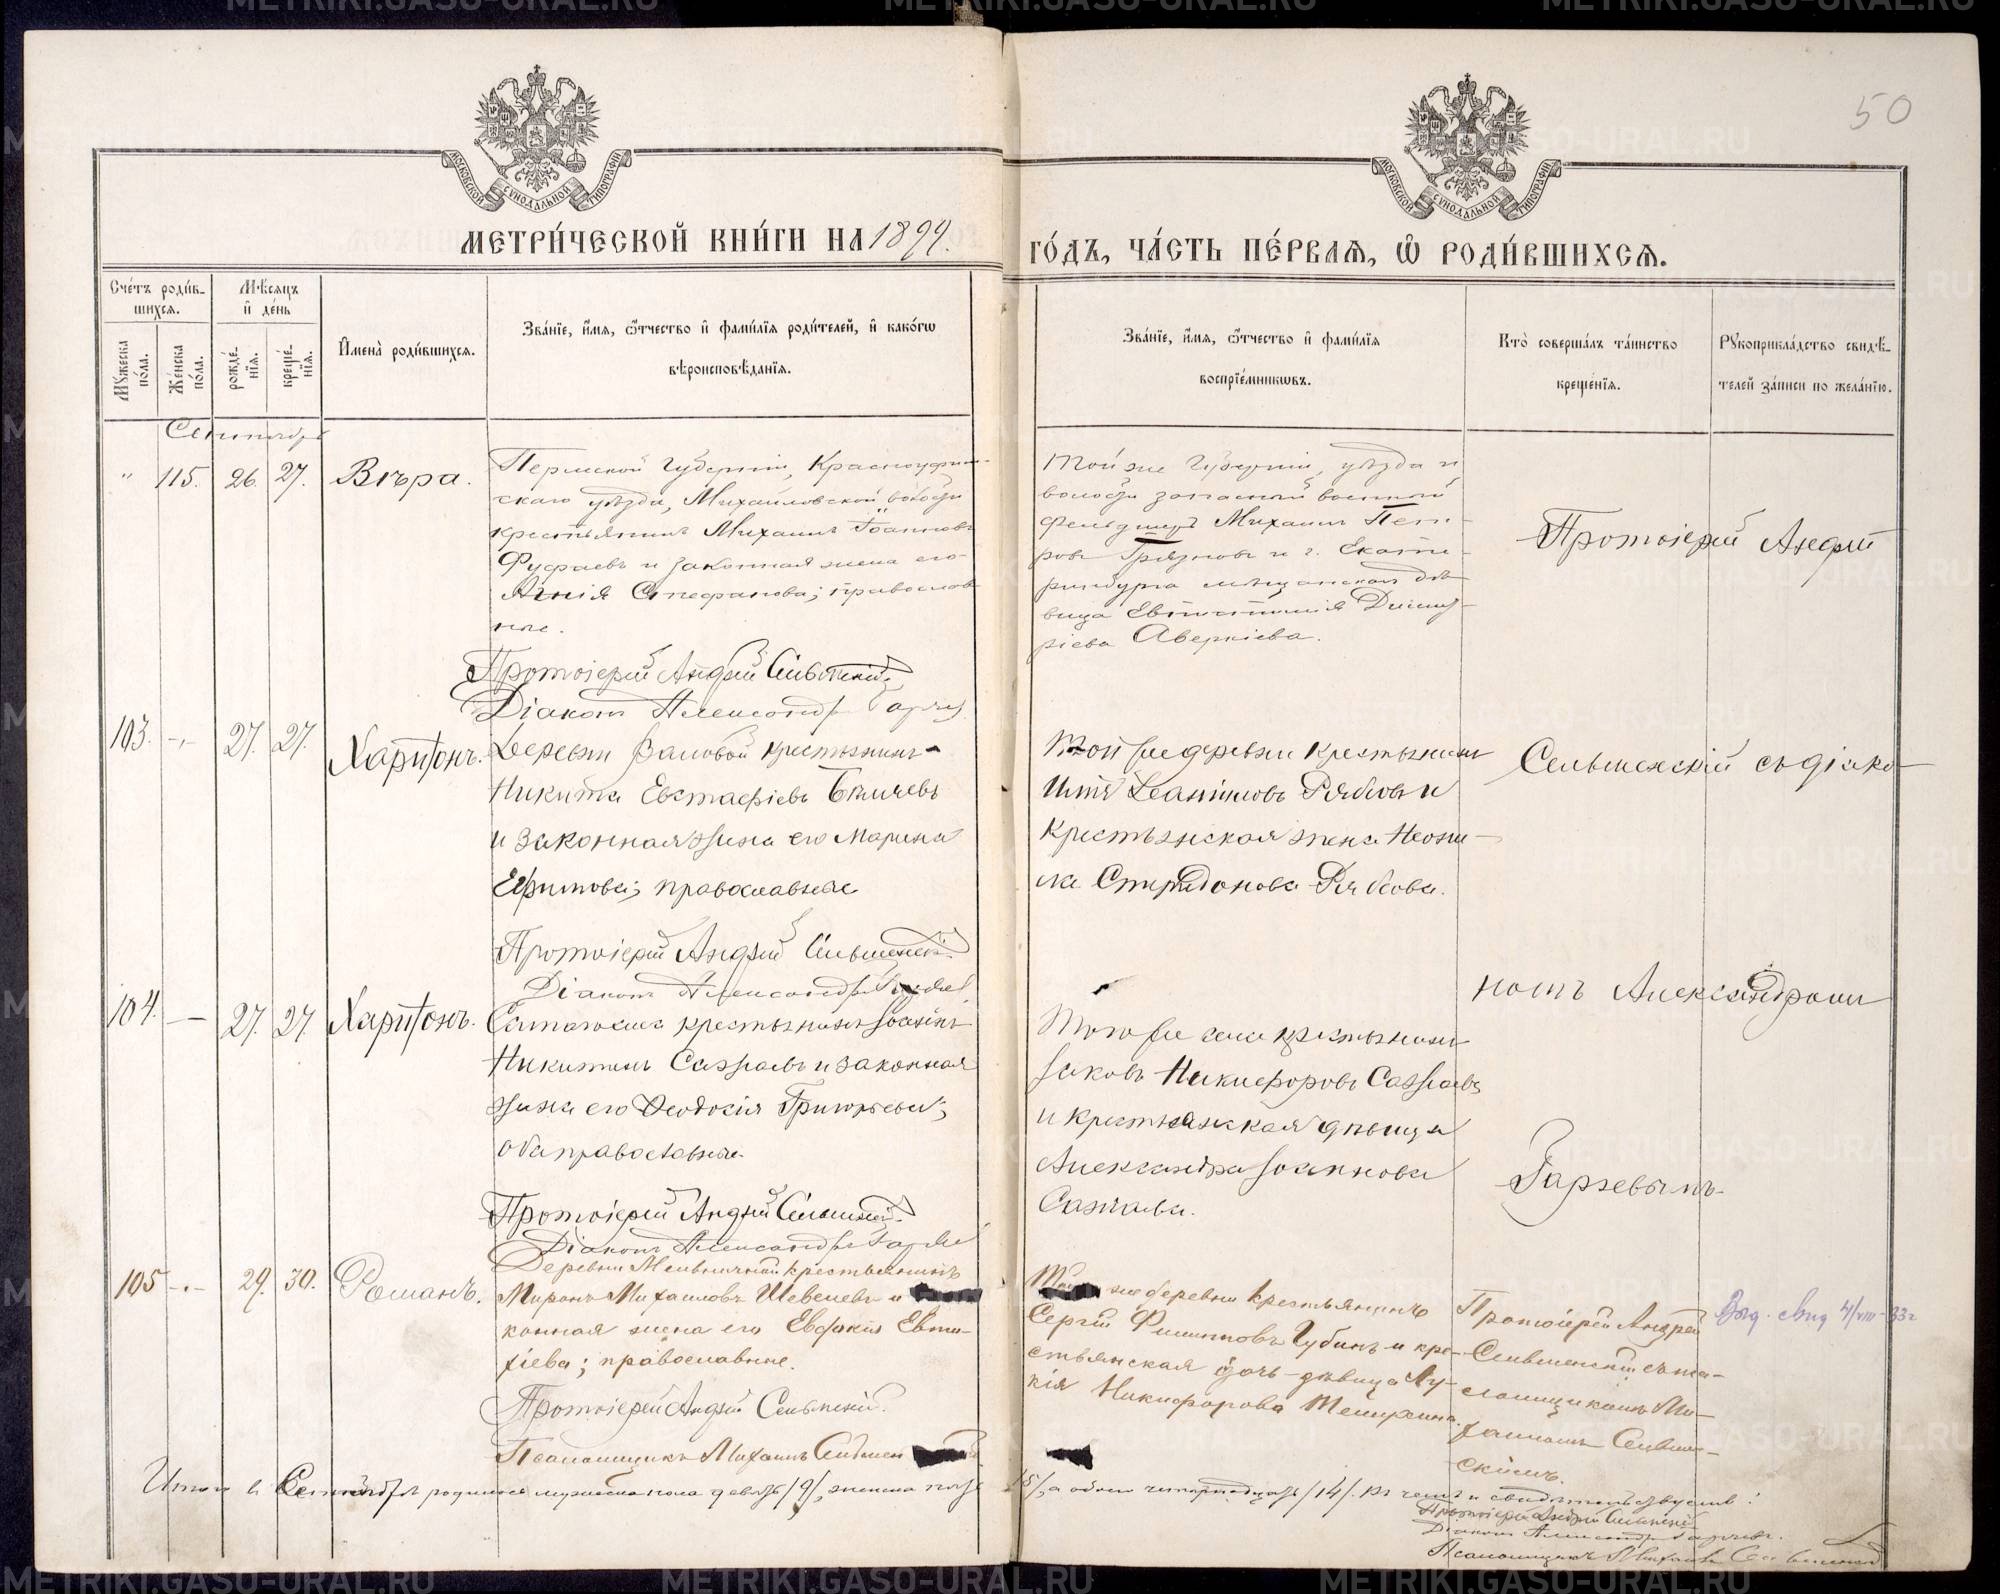 50
МЕТРИ́ЧЕСКОЙ КНИ́ГИ НА 1894.
ГО́ДЪ, ЧА́СТЬ ПЕ́РВАЯ, Ѽ РОДИ́ВШИХСЯ.
Сче́тъ роди́в-
шихся.
Мѣ́сяцъ
и҆ де́нь
Мꙋ́жеска
по́ла.
Же́нска
по́ла.
рожде́-
нїя.
креще́-
нїя.
И҆мена̀ роди́вшихся.
Зва́нїе, и҆́мя, ѻ҆́тчество и҆ фами́лїя роди́телей, и҆ како́гѡ
вѣроисповѣ́данїя.
Зва́нїе, и҆́мя, ѻ҆́тчество и҆ фами́лїя
воспрїе́мникѡвъ.
Кто̀ соверша́лъ та́инство
креще́нїя.
Рꙋкоприкла́дство свидѣ́-
телей за́писи по жела́нїю.
Сентября
" 115. 26. 27. Вѣра.
Пермской Губерніи, Красноуфим-
скаго уѣзда, Михайловской волости
крестьянинъ Михаилъ Іоанновъ
Фуфаевъ и законная жена его
Агнія Стефанова; православ-
ные.
Протоіерей Андрей Сельменскій
Діаконъ Александръ Гаряев
Той же Губерніи, уѣзда и
волости запасный военный
фельдшеръ Михаилъ Пет-
ровъ Грязновъ и г. Екате-
ринбурга мѣщанская дѣ-
вица Евгенія Димит-
ріева Аверкіева.
Протоіерей Андрей
103. -"- 27. 27. Харитонъ.
Деревни Валовой крестьянинъ
Никита Евстафіевъ Бѣличевъ
и законная жена его Марина
Ефимова; православные
Протоіерей Андрей Сельменскій
Діаконъ Александръ
Той же деревни крестьянинъ
Рябковъ и
крестьянская жена Неони-
ла Спиридонова Рябкова.
Сельменскій съ діако-
104. — 27. 27. Харитонъ.
Села крестьянинъ Іоаннъ
Никитинъ Сажаевъ и законная
жена его Ѳеодосія Григорьева;
оба православные.
Протоіерей Андрей Сельменскій
Діаконъ Александръ Гаряев
Того же села крестьянинъ
Іаковъ Никифоровъ Сажаевъ
и крестьянская дѣвица
Александра Іоаннова
Сажаева.
номъ Александромъ
Гаряевымъ.
105 -"- 29. 30. Романъ.
Деревни Мельничной крестьянинъ
Миронъ Михаиловъ Шевелевъ и
конная жена его Евдокія Евти-
хіева; православные.
Протоіерей Андрей Сельменскій.
Псаломщикъ Михаилъ Сельмен
же деревни крестьянинъ
Сергій Филипповъ Губинъ и кре-
стьянская дочь-дѣвица Лу-
кія Никифорова
Протоіерей Андрей
Сельменскій съ пса-
ломщикомъ Ми-
хаиломъ Сельмен-
скимъ.
Выд. свид 4/VIII-33г
Итого въ Сентябрѣ родилось мужеска пола девять /9/, женска пять
/5/, а обоего четырнадцать /14/. Въ чемъ и свидѣтельствуемъ:
Протоіерей Андрей Сельменскій
Діаконъ Александръ Гаряевъ.
Псаломщикъ Михаилъ Сельменскій